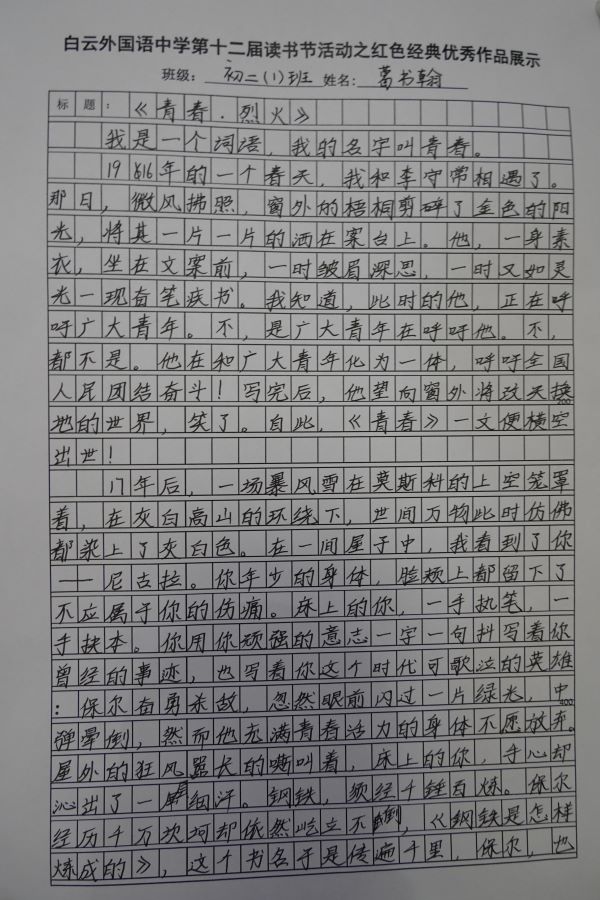 白云外国语中学第十二届读书节活动之红色经典优秀作品展示
班级：初二(1)班 姓名：葛书翰
标题：《青春·烈火》
我是一个词语，我的名字叫青春。
1916年的一个春天，我和李守常相遇了。
那日，微风拂照，窗外的梧桐剪碎了金色的阳
光，将其一片一片的洒在案台上。他，一身素
衣，坐在文案前，一时皱眉深思，一时又如灵
光一现奋笔疾书。我知道，此时的他，正在呼
吁广大青年。不，是广大青年在呼吁他。不，
都不是。他在和广大青年化为一体，呼吁全国
人民团结奋斗！写完后，他望向窗外将改天换
200
地的世界，笑了。自此，《青春》一文便横空
出世！
17年后，一场暴风雪在莫斯科的上空笼罩
着，在灰白高山的环绕下，世间万物此时仿佛
都染上了灰白色。在一间屋子中，我看到了你
——尼古拉。你年少的身体，脸颊上都留下了
不应属于你的伤痛。床上的你，一手执笔，一
手抉本。你用你顽强的意志一字一句抖写着你
曾经的事迹，也写着你这个时代可歌泣的英雄
：保尔奋勇杀敌，忽然眼前闪过一片绿光，中
400
弹晕倒，然而他充满青春活力的身体不愿放弃。
屋外的狂风嚣长的嘶叫着，床上的你，手心却
沁出了一层细汗。钢铁，须经千锤百炼。保尔
经历千万次坷却依然屹立不倒，《钢铁是怎样
炼成的》，这个书名于是传遍千里，保尔，也